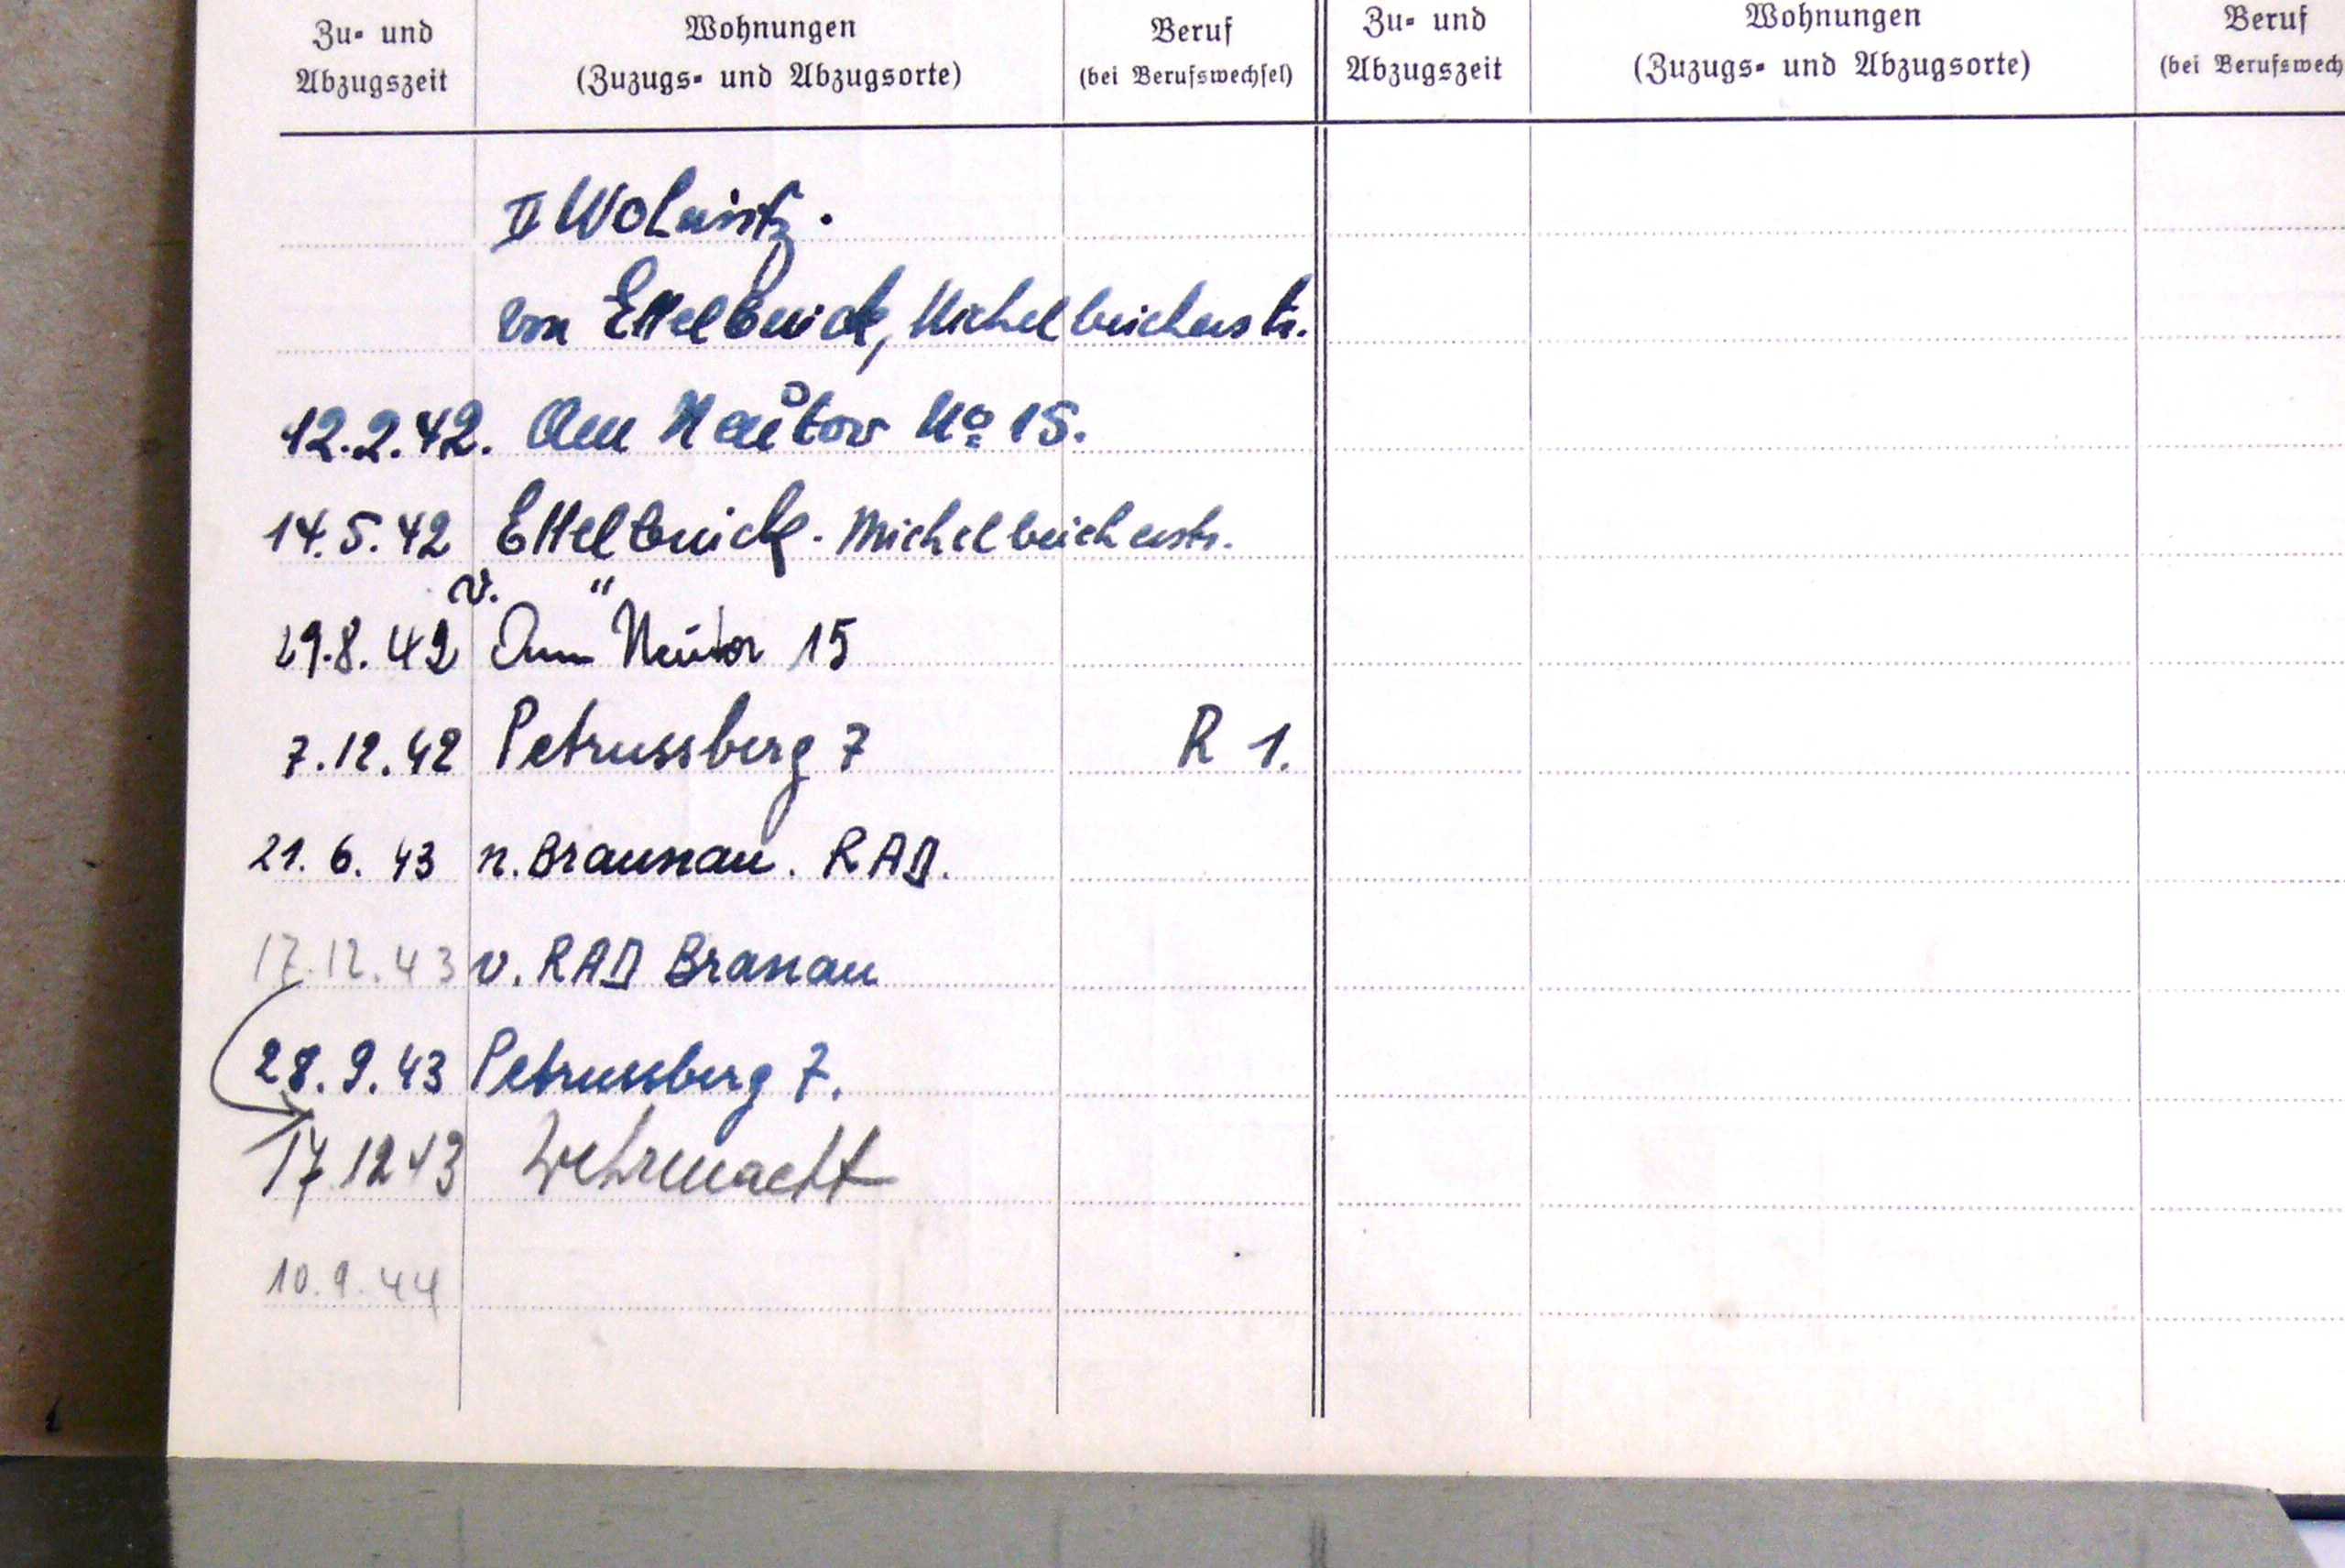 Zu- und Abzugszeit Wohnungen (Zuzugs- und Abzugsorte) Beruf (bei Berufswechsel) Zu- und Abzugszeit Wohnungen (Zuzugs- und Abzugsorte) Beruf (bei Berufswech
II Wohnsitz.
von Ettelbrück, Michelbucherstr.
12.2.42. Am Neutor No 15.
14.5.42 Ettelbrück. Michelbucherstr.
v. "
29.8.42 Am Neutor 15
7.12.42 Petrussberg 7 R 1.
21. 6. 43 n. Braunau. RAD.
17.12.43 v. RAD Branau
28.9.43 Petrussberg 7.
17 12 43 Wehrmacht
10.9.44